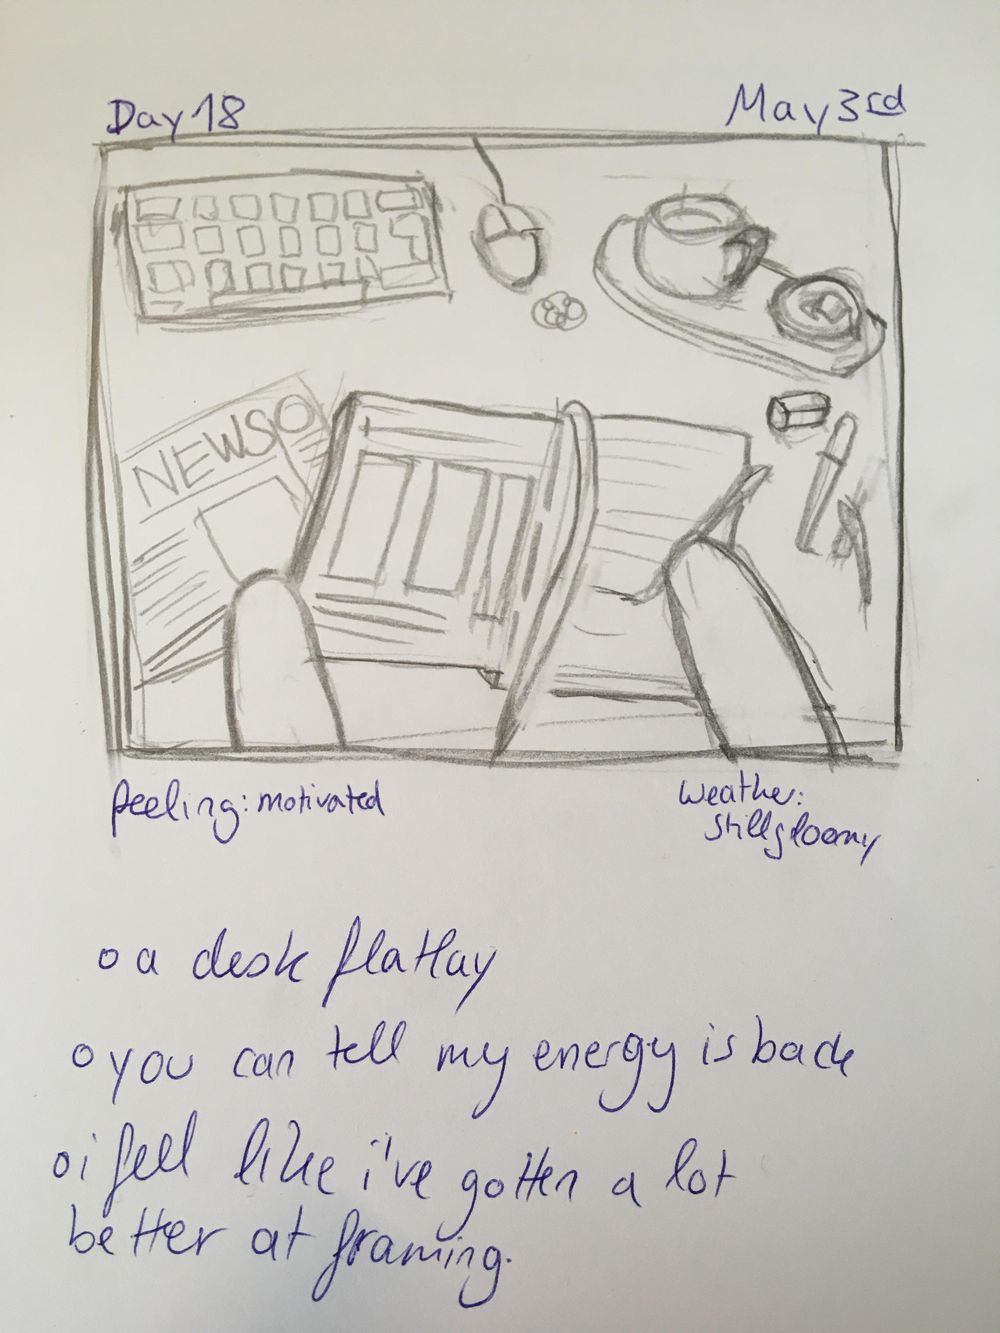 Day 18
May 3rd
NEWS
feeling: motivated
Weather:
still gloomy
o a desk flatlay
o you can tell my energy is back
o i feel like i've gotten a lot
better at framing.